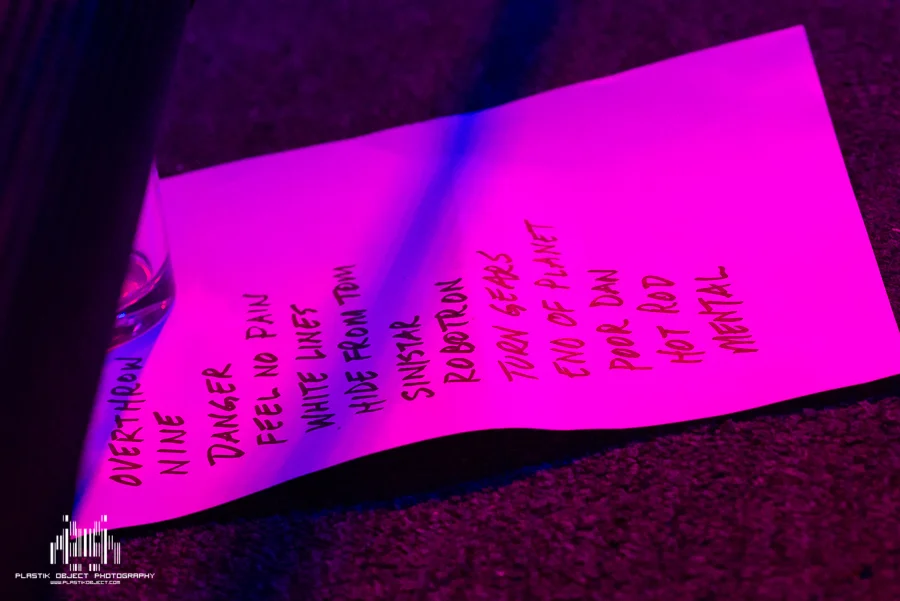 OVERTHROW
NINE
DANGER
FEEL NO PAIN
WHITE LINES
HIDE FROM TOM
SINISTAR
ROBOTRON
TURN GEARS
END OF PLANET
POOR DAN
HOT ROD
MENTAL
PLASTIK OBJECT PHOTOGRAPHY
WWW.PLASTIKOBJECT.COM